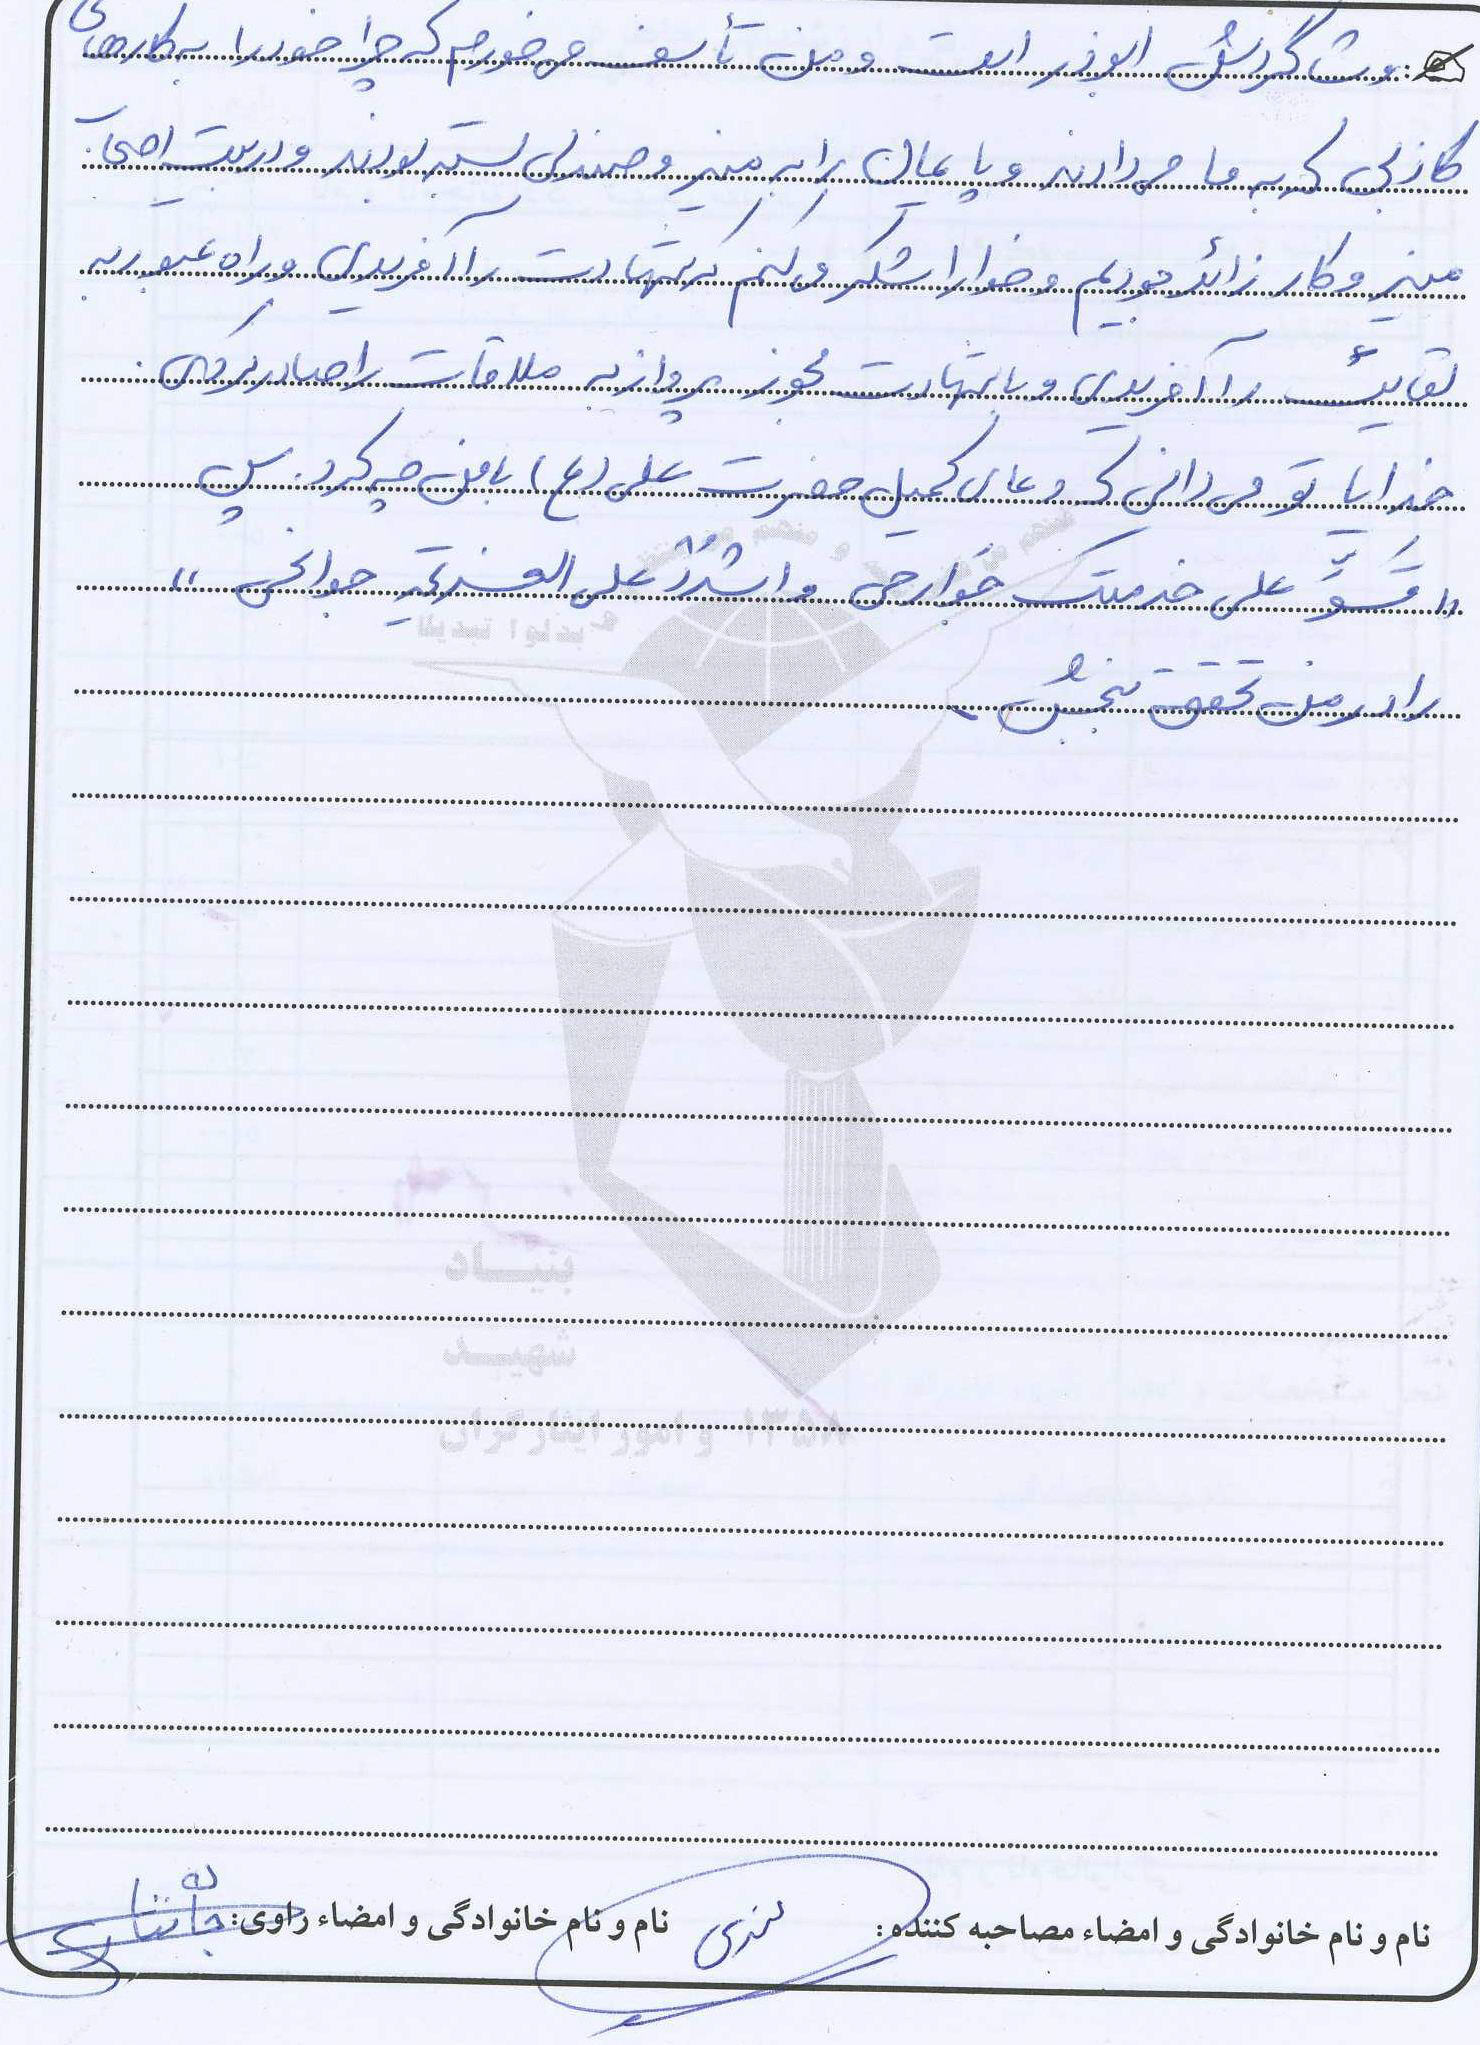 وشاگردش ابوذر است و من تأسف می خورم که چرا خود را به کارهای
کاذبی که به ما می دادند و پایمان را به میز و صندلی بسته بودند و در بیت
میز و کار زائد بودیم و خدا را شکر می کنم که شهادت را آفریدی و راه عبور به
لقایت را آفریدی و با شهادت مجوز پرواز به ملاقات را صادر کردی.
خدایا تو می دانی که دعای کمیل حضرت علی (ع) با من چه کرد. پس
"قَوِّ علی خدمتک جوارحی و اشدُد علی العزیمة جوانحی"
را در من تحقق بخش.
بنیاد
شهید
و امور ایثارگران ۱۳۵۸
نام و نام خانوادگی و امضاء مصاحبه کننده:
نام و نام خانوادگی و امضاء راوی: